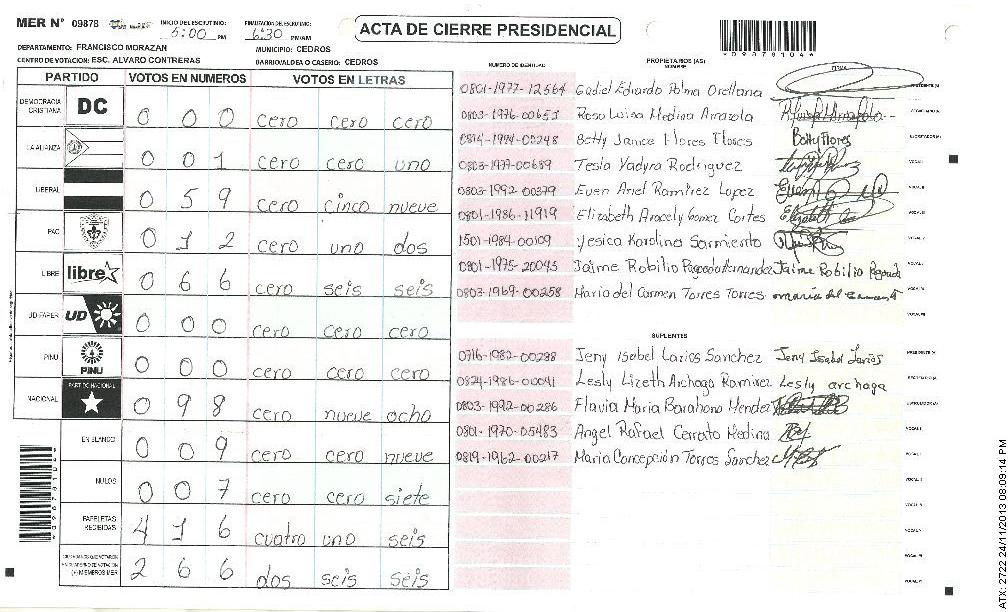 MER N° 09878
INICIO DEL ESCRUTINIO: 5:00 PM
FINALIZACION DEL ESCRUTINIO: 6:30 PM/AM
ACTA DE CIERRE PRESIDENCIAL
DEPARTAMENTO: FRANCISCO MORAZAN
MUNICIPIO: CEDROS
CENTRO DE VOTACION: ESC. ALVARO CONTRERAS
BARRIO/ALDEA O CASERIO: CEDROS
PARTIDO VOTOS EN NUMEROS VOTOS EN LETRAS
DEMOCRACIA CRISTIANA DC 0 0 0 cero cero cero
LA ALIANZA 0 0 1 cero cero uno
LIBERAL 0 5 9 cero cinco nueve
PAC 0 1 2 cero uno dos
LIBRE libre 0 6 6 cero seis seis
UD-FAPER UD 0 0 0 cero cero cero
PINU PINU 0 0 0 cero cero cero
NACIONAL PARTIDO NACIONAL 0 9 8 cero nueve ocho
EN BLANCO 0 0 9 cero cero nueve
NULOS 0 0 7 cero cero siete
PAPELETAS RECIBIDAS 4 1 6 cuatro uno seis
(+) MIEMBROS MER 2 6 6 dos seis seis
NUMERO DE IDENTIDAD
PROPIETARIOS (AS)
NOMBRE
FIRMA
0801-1977-12564 Gadiel Eduardo Palma Orellana
0803-1976-00653 Rosa Luisa Medina Amazola
0814-1994-00248 Betty Janice Flores Flores Betty Flores
0803-1977-00689 Tesla Yadyra Rodriguez
0803-1992-00379 Even Ariel Ramirez Lopez
0801-1986-11919 Elizabeth Aracely Gomez Cortes Elizabeth
1501-1984-00109 Yesica Karolina Sarmiento
0801-1975-20045 Jaime Robilio Pagoada Hernandez Jaime Robilio Pagoada
0803-1969-00258 Maria del Carmen Torres Torres maria del
SUPLENTES
0716-1982-00288 Jeny Isabel Larios Sanchez Jeny Isabel Larios
0824-1986-00041 Lesly Lizeth Archaga Ramirez Lesly archaga
0803-1992-00286 Flavia Maria Barahona Mendez
0801-1970-05483 Angel Rafael Cerrato Medina
0819-1962-00217 Maria Concepción Torres Sanchez
ATX: 2722 24/11/2013 08:09:14 PM